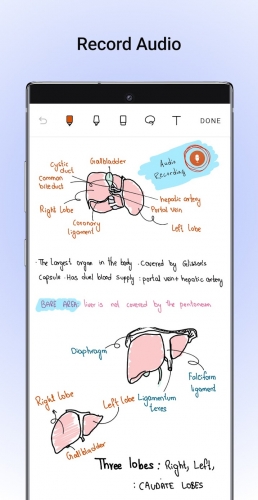 Record Audio
T DONE
Cystic duct
Gallbladder
Common bile duct
Audio
Recording
hepatic artery
Portal vein
Right Lobe
Coronary
ligament
Left Lobe
· The largest organ in the body . Covered by Glisson's
Capsule . Has dual blood supply : portal vein + hepatic artery
BARE AREA: liver is not covered by the peritoneum
Diaphragm
Falciform
ligament
Right lobe
Left lobe
Ligamentum
teres
Gallbladder
Three lobes : Right, Left,
: CAUDATE LOBES